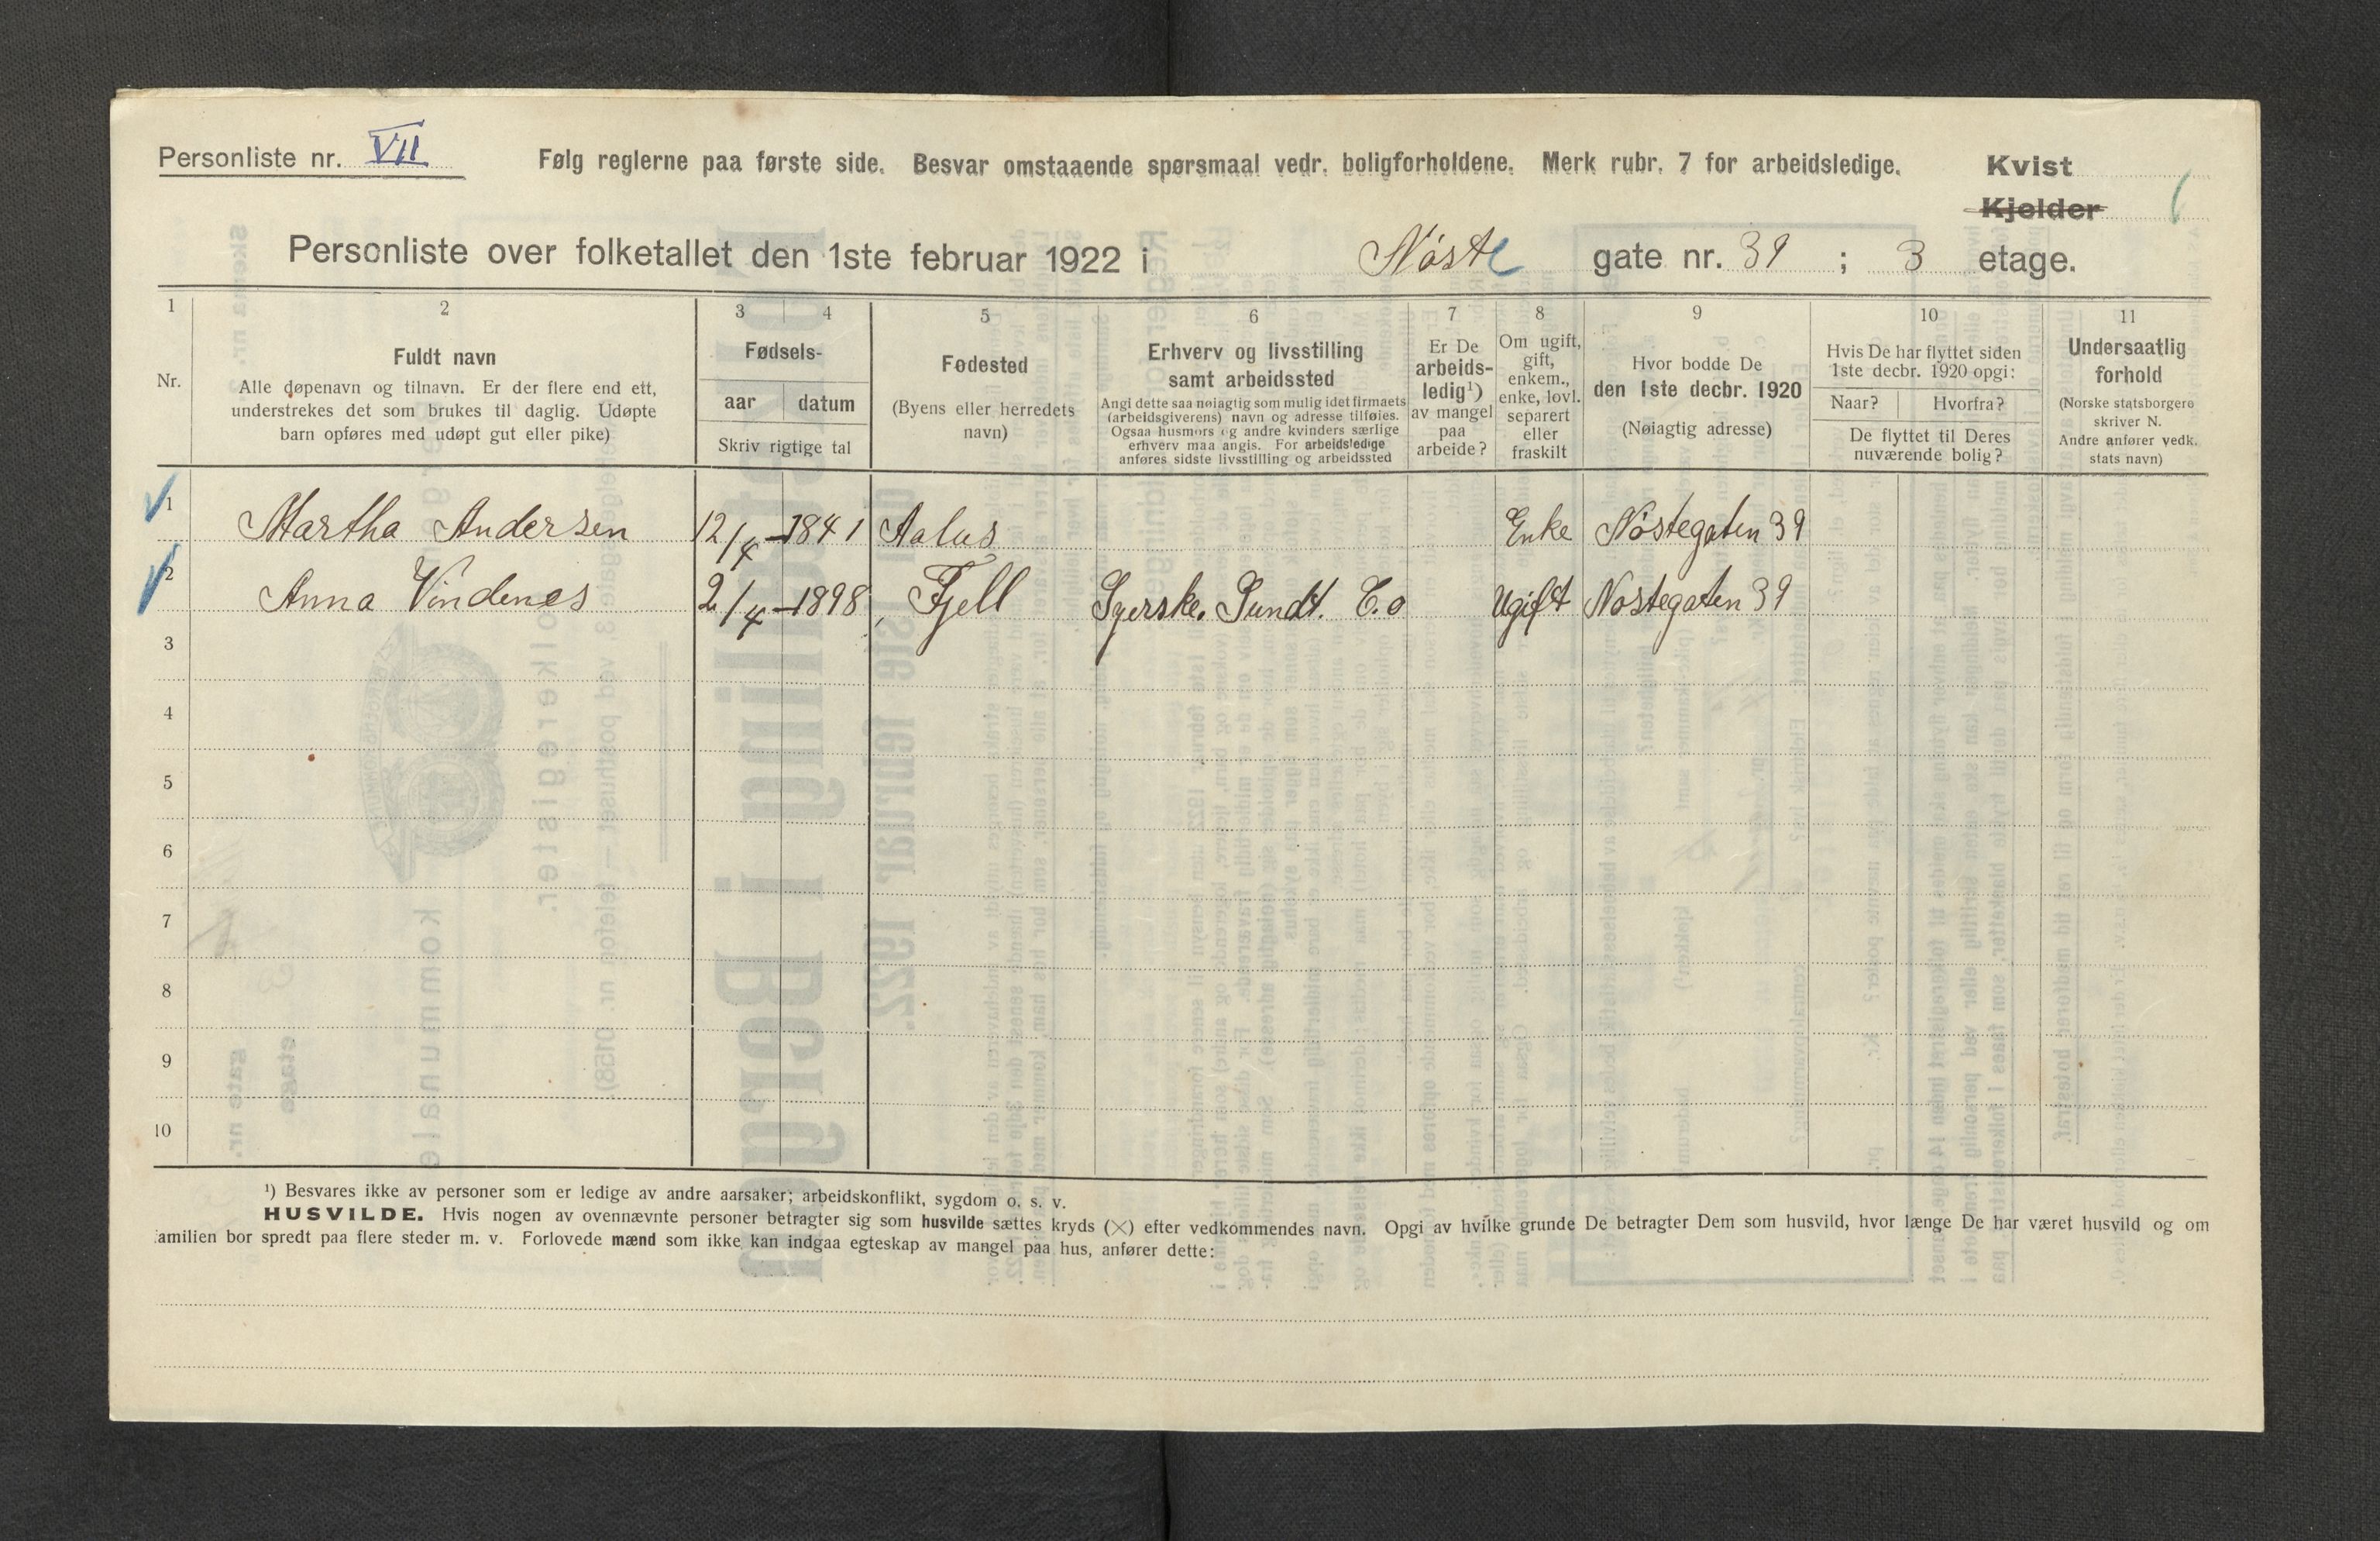 Personliste nr. VII
Følg reglerne paa første side. Besvar omstaaende spørsmaal vedr. boligforholdene. Merk rubr. 7 for arbeidsledige.
Kvist
Kjelder
Personliste over folketallet den 1ste februar 1922 i Nøste gate nr. 39 ; 3 etage.
1 2 3 4 5 6 7 8 9 10 11
Nr.
Fuldt navn
Alle døpenavn og tilnavn. Er der flere end ett,
understrekes det som brukes til daglig. Udøpte
barn opføres med udøpt gut eller pike)
Fødsels-
aar datum
Skriv rigtige tal
Fødested
(Byens eller herredets
navn)
Erhverv og livsstilling
samt arbeidssted
Angi dette saa nøiagtig som mulig idet firmaets
(arbeidsgiverens) navn og adresse tilføies.
Ogsaa husmors og andre kvinders særlige
erhverv maa angis. For arbeidsledige
anføres sidste livsstilling og arbeidssted
Er De
arbeids-
ledig¹)
av mangel
paa
arbeide?
Om ugift,
gift,
enkem.,
enke, lovl.
separert
eller
fraskilt
Hvor bodde De
den 1ste decbr. 1920
(Nøiagtig adresse)
Hvis De har flyttet siden
1ste decbr. 1920 opgi:
Naar? Hvorfra?
De flyttet til Deres
nuværende bolig?
Undersaatlig
forhold
(Norske statsborgere
skriver N.
Andre anfører vedk.
stats navn)
1 Martha Andersen 12/4 - 1841 Enke Nøstegaten 39
2 Anna Vindenes 2/4 - 1898 Fjell Syerske. Sundt. C.o Ugift Nøstegaten 39
3
4
5
6
7
8
9
10
¹) Besvares ikke av personer som er ledige av andre aarsaker; arbeidskonflikt, sygdom o. s. v.
HUSVILDE. Hvis nogen av ovennævnte personer betragter sig som husvilde sættes kryds (×) efter vedkommendes navn. Opgi av hvilke grunde De betragter Dem som husvild, hvor længe De har været husvild og om
amilien bor spredt paa flere steder m. v. Forlovede mænd som ikke kan indgaa egteskap av mangel paa hus, anfører dette: